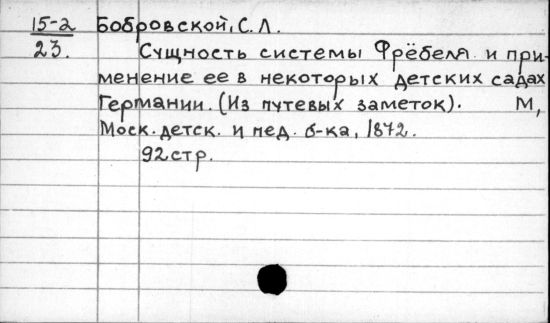 15-2 Бобровской, С.Л.
23. Сущность системы Фрёбеля и при-
менение ее в некоторых детских садах
Германии. (Из путевых заметок). М,
Моск. детск. и пед. б-ка, 1872.
92 стр.